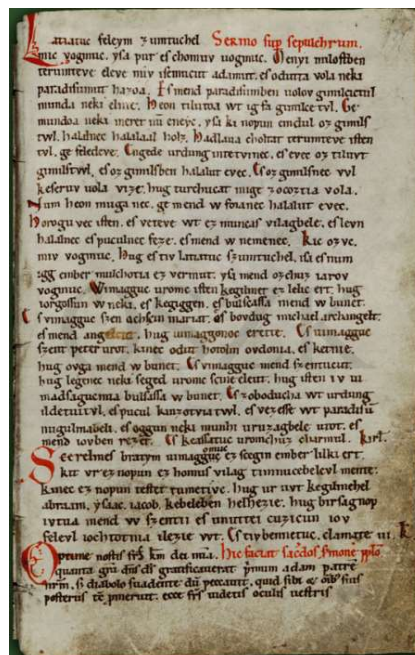 Latiatuc feleym zumtuchel Sermo sup sepulchrum.
mic vogmuc. ysa pur es chomuv uogmuc. Menyi milostben
terumteve eleve miv isemucut adamut. es odutta vola neki
paradisumut hazoa. Es mend paradisumben uolov gimilcictul
munda neki elnie. Heon tilutoa wt ig fa gimilce tvl. Ge
mundoa neki meret nū eneyc. ysa ki nopun emdul oz gimils
twl. halalnec halalaal holz. Hadlaua choltat terumteve isten
tvl. ge feledeve. Engede urdung intetvinec. es evec oz tiluvt
gimilstwl. es oz gimilsben halalut evec. Es oz gimilsnec vvl
keseruv uola vize. hug turchucat mige zocoztia vola.
Num heon muga nec. ge mend w foianec halalut evec.
Horogu vec isten. es veteve wt ez muncas vilagbele. es levn
halalnec es puculnec feze. es mend w nemenec. Kic ozvc.
miv vogmuc. Hug es tiv latiatuc szumtuchel. isa es num
igg ember mulchotia ez vermut. ysa mend ozchuz iarov
vogmuc. Wimagguc uromc isten kegilmet ez lelic ert. hug
iorgossun w neki. es kegiggen. es bulsassa mend w bunet.
Es vimagguc szen achscin mariat. es bovdug michael archangelt.
es mend angelcut. hug uimaggonoc erette. Es uimagguc
szent peter urot. kinec odut hotolm ovdonia. es ketnie.
hug ovga mend w bunet. Es vimagguc mend szentucut.
hug legenec neki seged uromc scine eleut. hug isten iv ui
madsagucmia bulsassa w bunet. Es zoboducha wt urdung
ildetuitvl. es pucul kinzotviatwl. es vezesse wt paradisū
nugulmabeli. es oggun neki munhi uruzagbele utot. es
mend iovben rezet. Es keassatuc uromchuz charmul. Kirl.
Scerelmes bratym uimagguc omuc ez scegin ember lilki ert.
kit vr ez nopun ez homus vilag timnucebelevl mente.
kinec ez nopun testet tumetivc. hug ur uvt kegilmehel
abraam. ysaac. iacob. kebeleben helhezie. hug birsagnop
ivtua mend w szentii es unuttei cuzicun iov
felevl iochtotnia ilezie wt. Es tiv bennetuc. clamate iii. k.
Optime nostis frs̄ km̄ dei mīa. hic faciat sac̄dos s̄monē pp̄lo.
quanta grā dn̄s ds̄ gratificauerat primum adam patrē
nrm̄. si diabolo suadente dū peccauit. quid sibi &amp; oīb' suis
posteris tē pmeruit. ecce frs̄ videtis oculis uestris